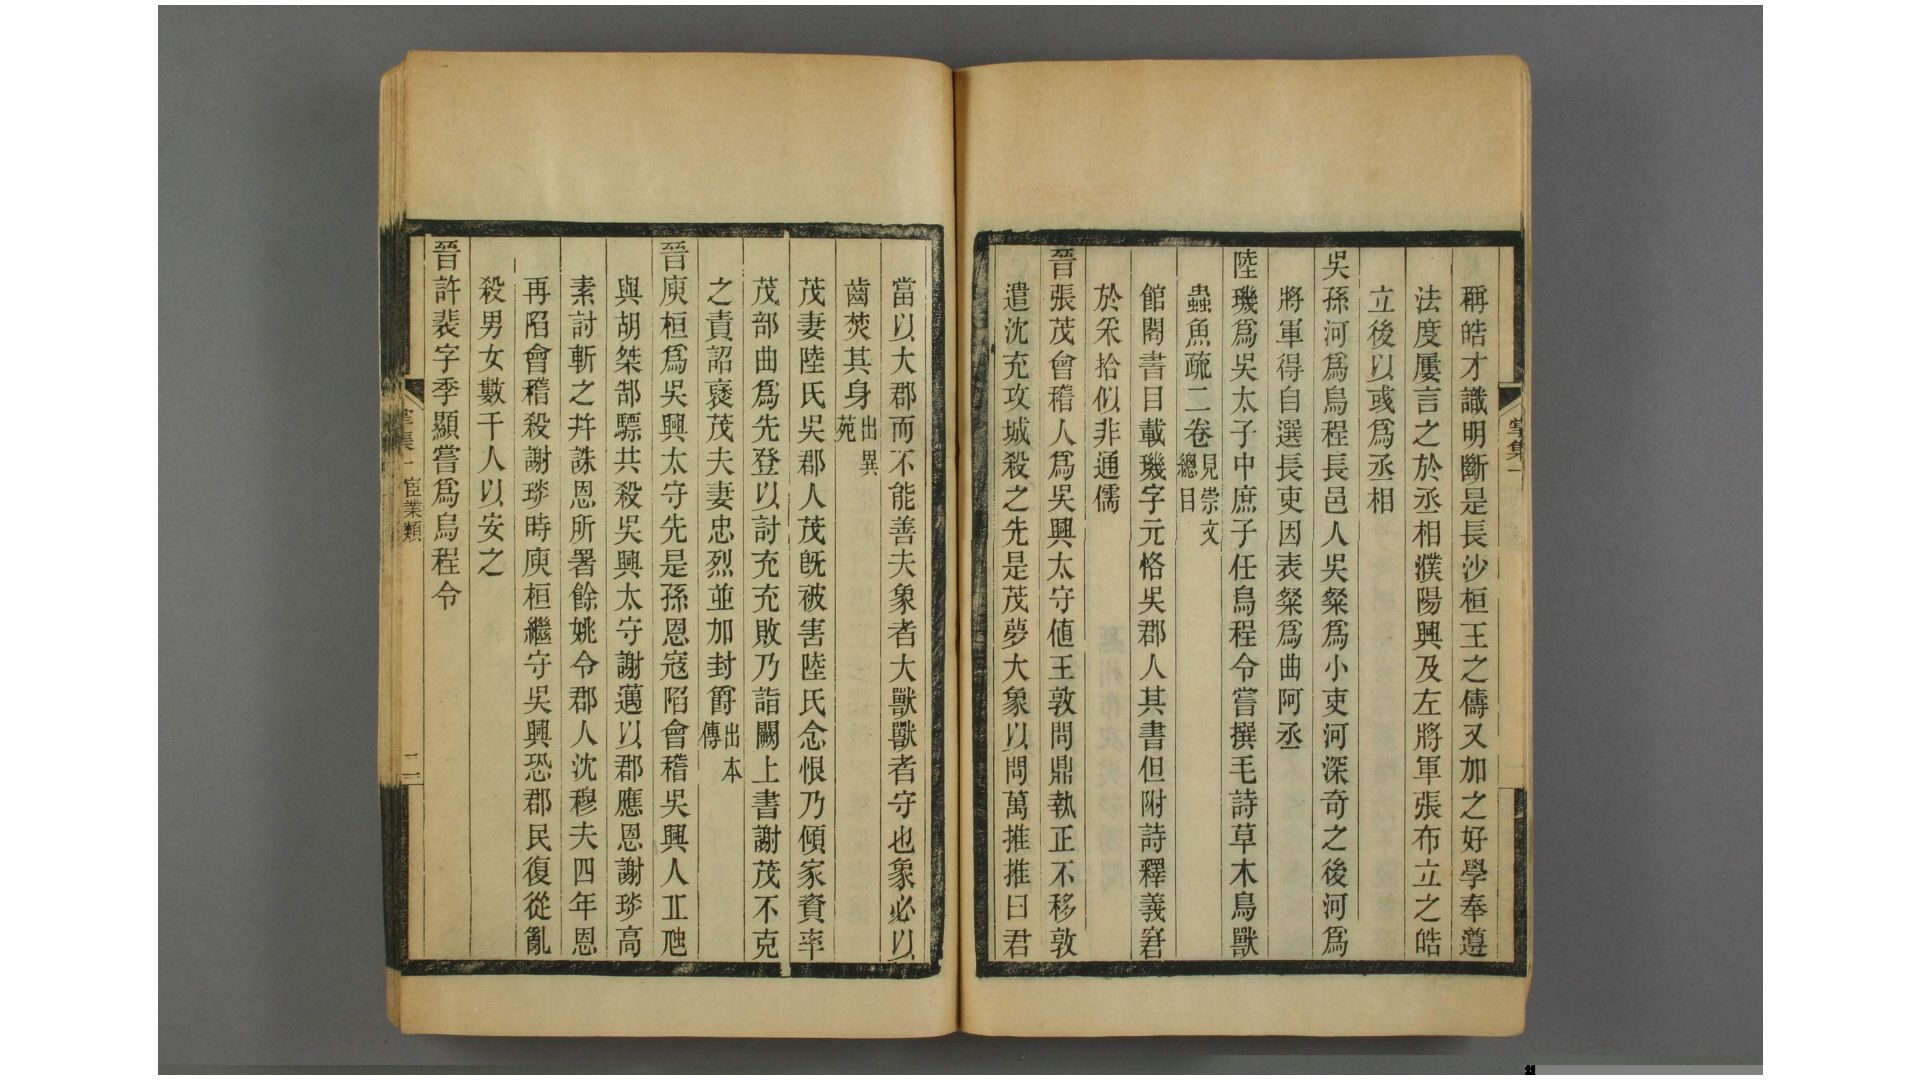 稱皓才識明斷是長沙桓王之儔又加之好學奉遵
法度屢言之於丞相濮陽興及左將軍張布立之皓
立後以彧爲丞相
吳孫河爲烏程長邑人吳粲爲小吏河深奇之後河爲
將軍得自選長吏因表粲爲曲阿丞
陸璣爲吳太子中庶子任烏程令嘗撰毛詩草木鳥獸
蟲魚疏二卷見崇文總目
館閣書目載璣字元恪吳郡人其書但附詩釋義窘
於采拾似非通儒
晉張茂會稽人爲吳興太守値王敦問鼎執正不移敦
遣沈充攻城殺之先是茂夢大象以問萬推推曰君
當以大郡而不能善夫象者大獸獸者守也象必以
齒焚其身出異苑
茂妻陸氏吳郡人茂旣被害陸氏念恨乃傾家資率
茂部曲爲先登以討充充敗乃詣闕上書謝茂不克
之責詔襃茂夫妻忠烈並加封爵出本傳
晉庾桓爲吳興太守先是孫恩寇陷會稽吳興人丠
與胡桀郜驃共殺吳興太守謝邁以郡應恩謝琰高
素討斬之幷誅恩所署餘姚令郡人沈穆夫四年恩
再陷會稽殺謝琰時庾桓繼守吳興恐郡民復從亂
殺男女數千人以安之
晉許裴字季顯嘗爲烏程令
掌集一
掌集一
宦業類
二